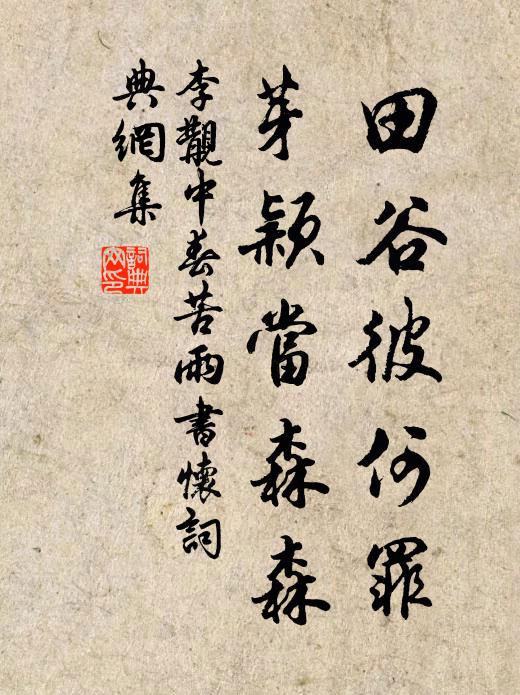 田谷彼何罪
芽穎當森森
李觀中春苦雨書懷詞
典網集
詞典網印